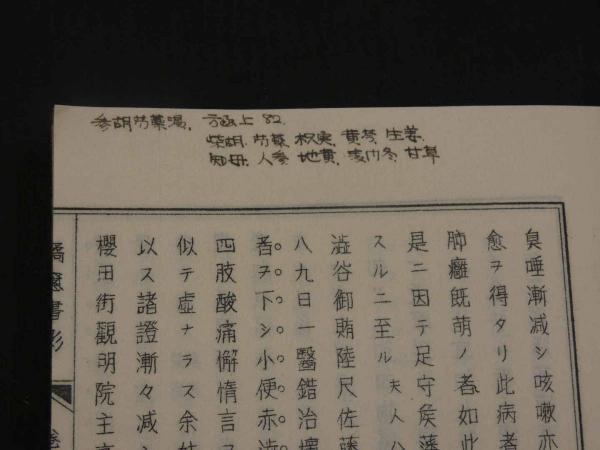 参胡芍薬湯、方函上 82.
柴胡、芍薬、枳実、黄芩、生姜、
知母、人参、地黄、麦門冬、甘草
臭唾漸减シ咳嗽亦
愈ヲ得タリ此病者
肺癰既萌ノ者如此
是ニ因テ足守侯藩
スルニ至ル夫人ハ
澁谷御賄陸尺佐藤
八九日一醫錯治壞
者ヲ下シ小便赤渋
四肢酸痛懈惰言
似テ虚ナラス余
以ス諸證漸々减
櫻田街觀明院主
橘窓書影